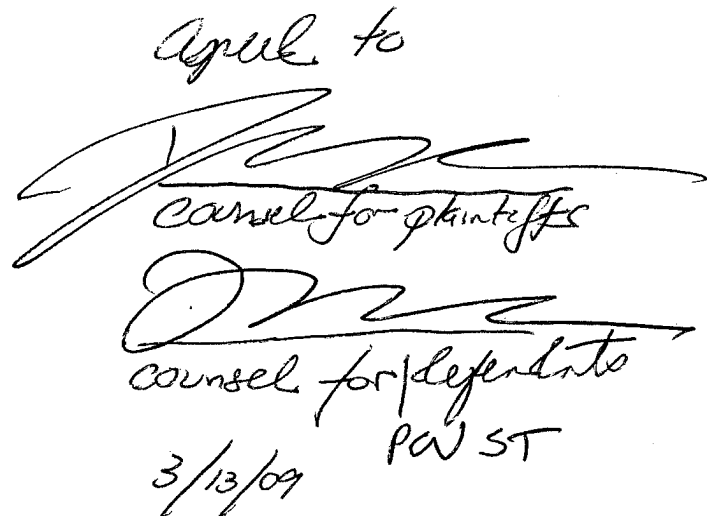 agreed to
counsel for plaintiffs
counsel for defendants
3/13/09